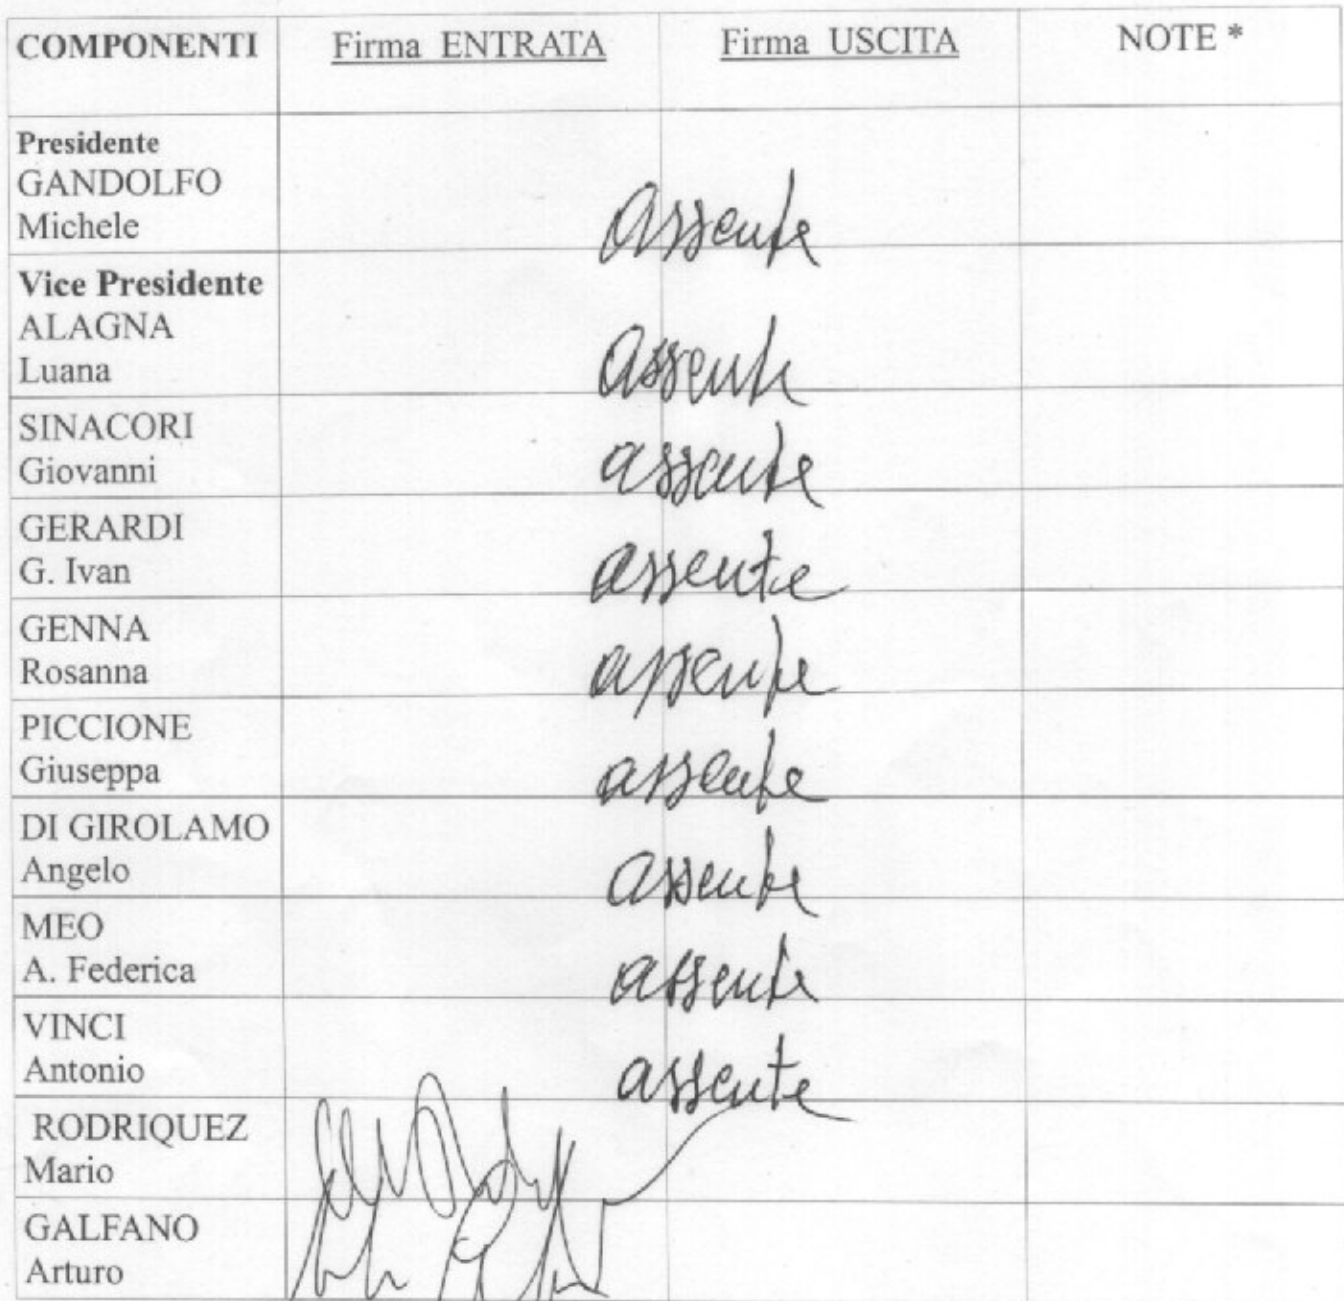 COMPONENTI Firma ENTRATA Firma USCITA NOTE *
Presidente
GANDOLFO
Michele
assente
Vice Presidente
ALAGNA
Luana
assente
SINACORI
Giovanni
assente
GERARDI
G. Ivan
assente
GENNA
Rosanna
assente
PICCIONE
Giuseppa
assente
DI GIROLAMO
Angelo
assente
MEO
A. Federica
assente
VINCI
Antonio
assente
RODRIQUEZ
Mario
GALFANO
Arturo